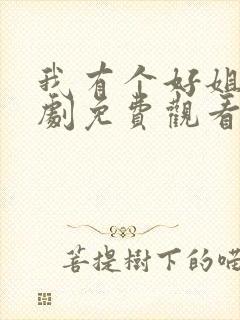 我有个好姐
劇免費觀看
菩提樹下的喵